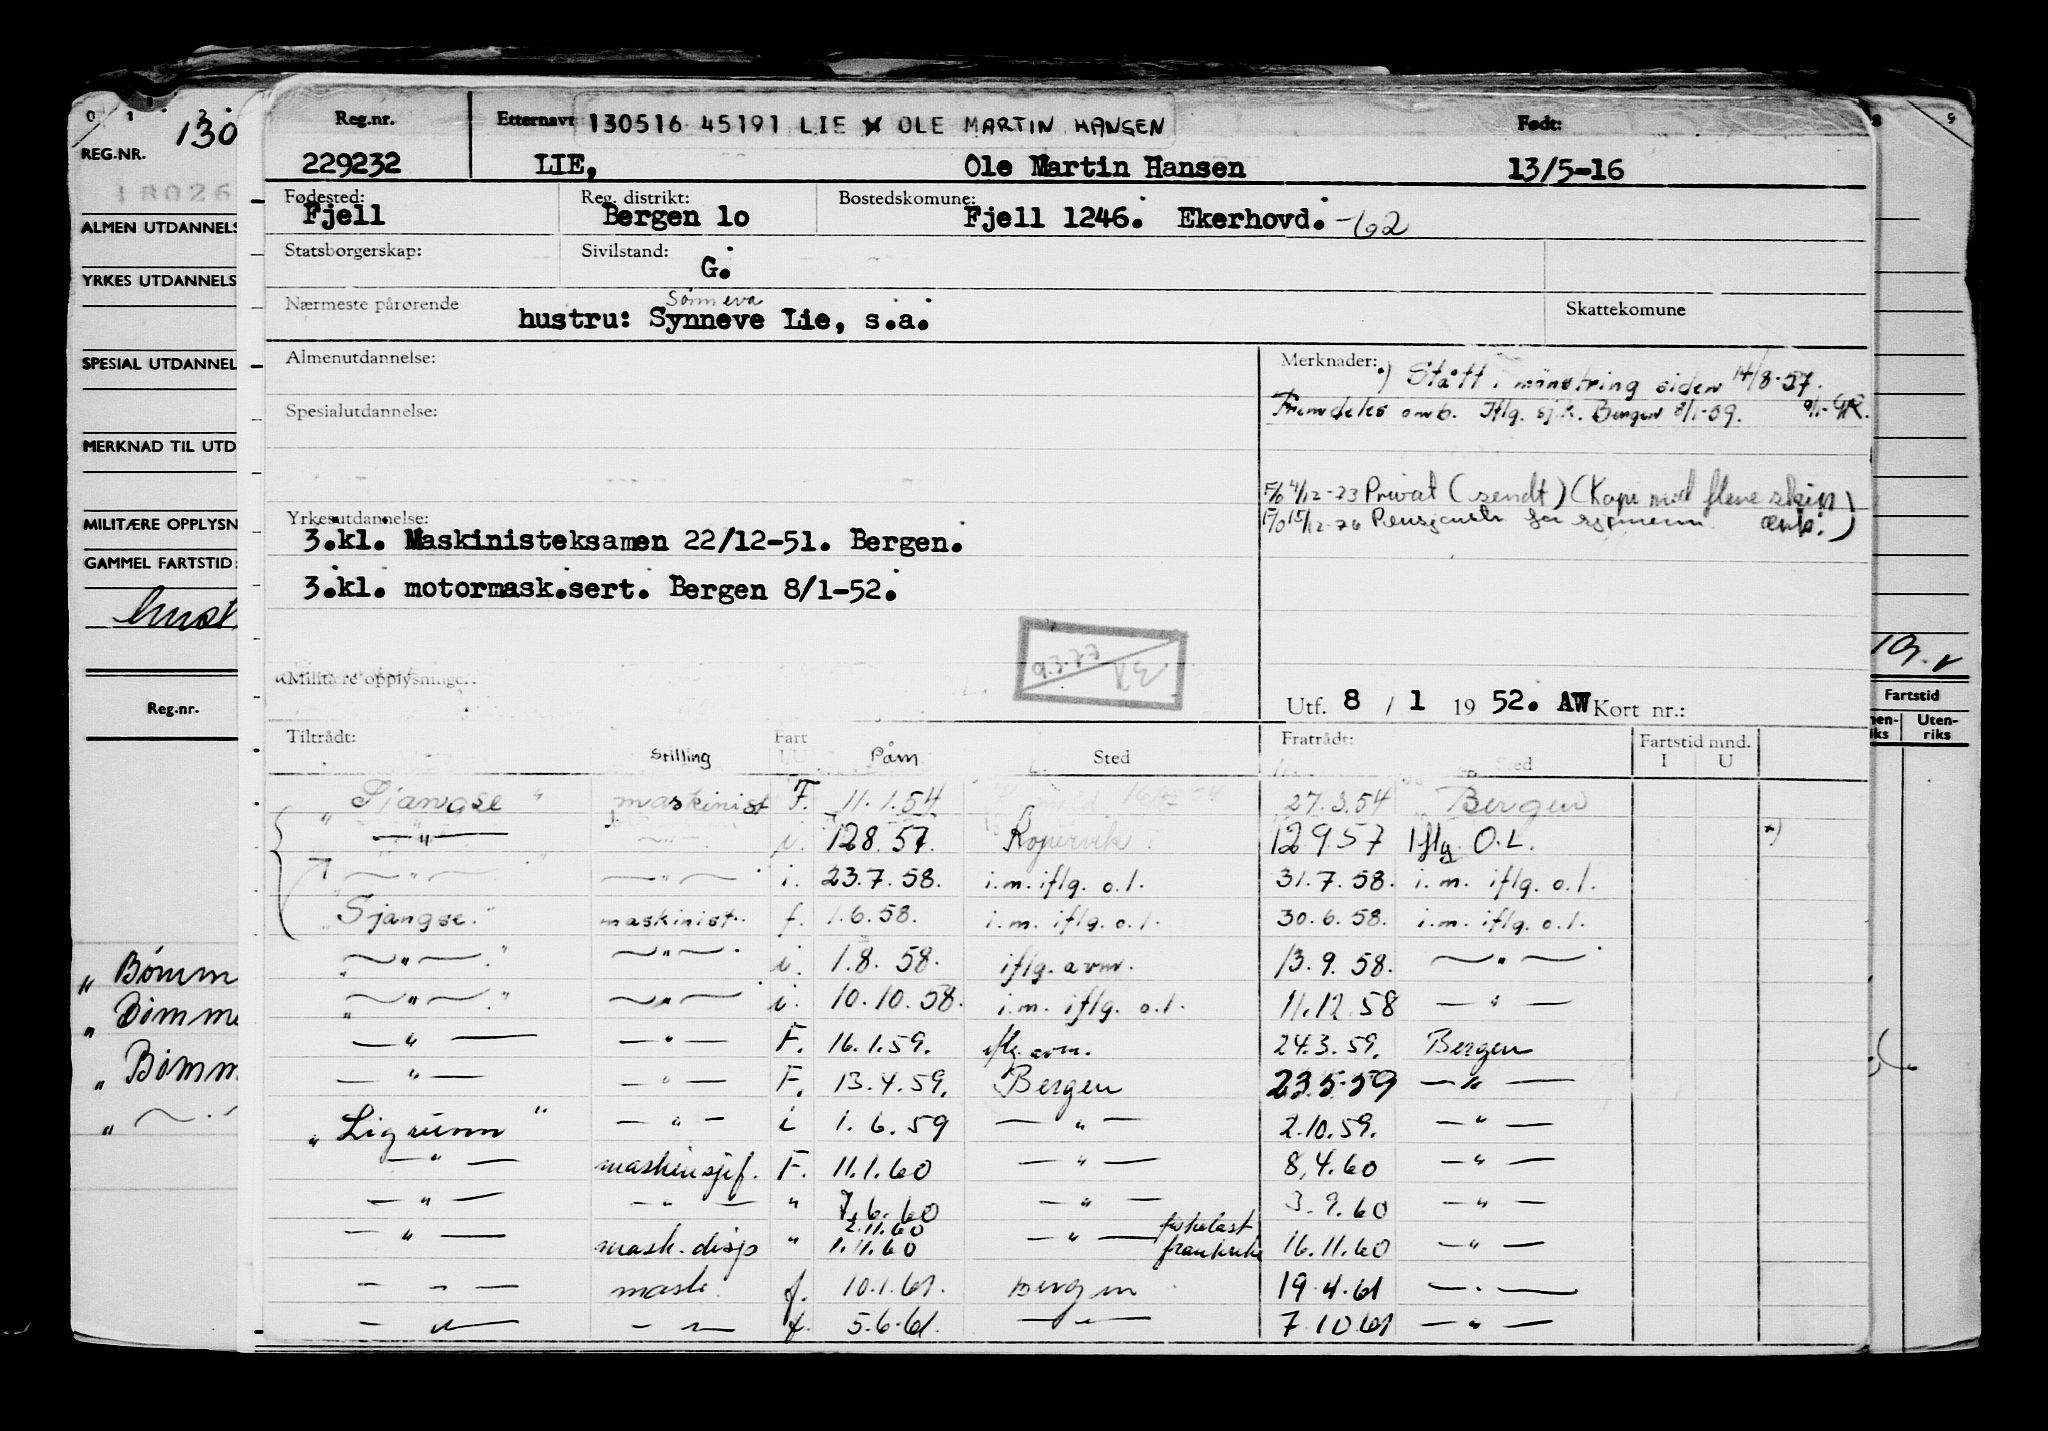 Reg.nr. Etternavn 130516 45191 LIE OLE MARTIN HANSEN Født:
229232 LIE, Ole Martin Hansen 13/5-16
Fødested: Reg. distrikt: Bostedskomune:
Fjell Bergen lo Fjell 1246. Ekerhovd. -62
Statsborgerskap: Sivilstand: G.
Nærmeste pårørende Sønneva Skattekomune
hustru: Synneve Lie, s.a.
Almenutdannelse: Merknader: *) Stått i mønstring siden 14/8-57.
Spesialutdannelse: Fremdeles omb. Iflg. sj.k. Bergen 8/1-59.
4/12-73 Privat (sendt) (Kopi med flere skip
15/12-76 for
Yrkesutdannelse:
3.kl. Maskinisteksamen 22/12-51. Bergen.
3.kl. motormask.sert. Bergen 8/1-52.
9.3.77
Militære opplysninger: Utf. 8 / 1 19 52. AW Kort nr.:
Tiltrådt: Stilling Fart I/U Påm Sted Fratrådt: Sted Fartstid mnd. I U
"Sjangse" maskinist F. 11.1.54 27.3.54 Bergen
— " — — " — i. 12.8.57. Kopervik 12957 Iflg. O.L. *)
— " — — " — i. 23.7.58. i.m. iflg. o.l. 31.7.58. i.m. iflg. o.l.
"Sjangse." maskinist. f. 1.6.58. i.m. iflg. o.l. 30.6.58. i.m. iflg. o.l.
— " — — " — i. 1.8.58. iflg. avm. 13.9.58. — " —
— " — — " — i. 10.10.58. i.m. iflg. o.l. 11.12.58 — " —
— " — — " — F. 16.1.59. iflg. avm. 24.3.59. Bergen
— " — — " — F. 13.4.59. Bergen 23.5-59 — " —
"Ligrunn" — " — i 1.6.59 — " — 2.10.59. — " —
— " — maskinsjef. F. 11.1.60 — " — 8.4.60 — " —
— " — — " — " 7.6.60 — " — 3.9.60 — " —
2.11.60 fiskelast
— " — mask. disp " 1.11.60 — " — frankrike 16.11.60 — " —
— " — mask. f. 10.1.61. Bergen 19.4.61 — " —
— " — — " — f. 5.6.61. — " — 7.10.61 — " —
0 1
REG.NR. 130
18026
ALMEN UTDANNELS
YRKES UTDANNELS
SPESIAL UTDANNEL
MERKNAD TIL UTD
MILITÆRE OPPLYSN
GAMMEL FARTSTID:
Reg.nr.
"Bømm
"Bømme
"Bømm
8 9
Fartstid
Uten-
riks